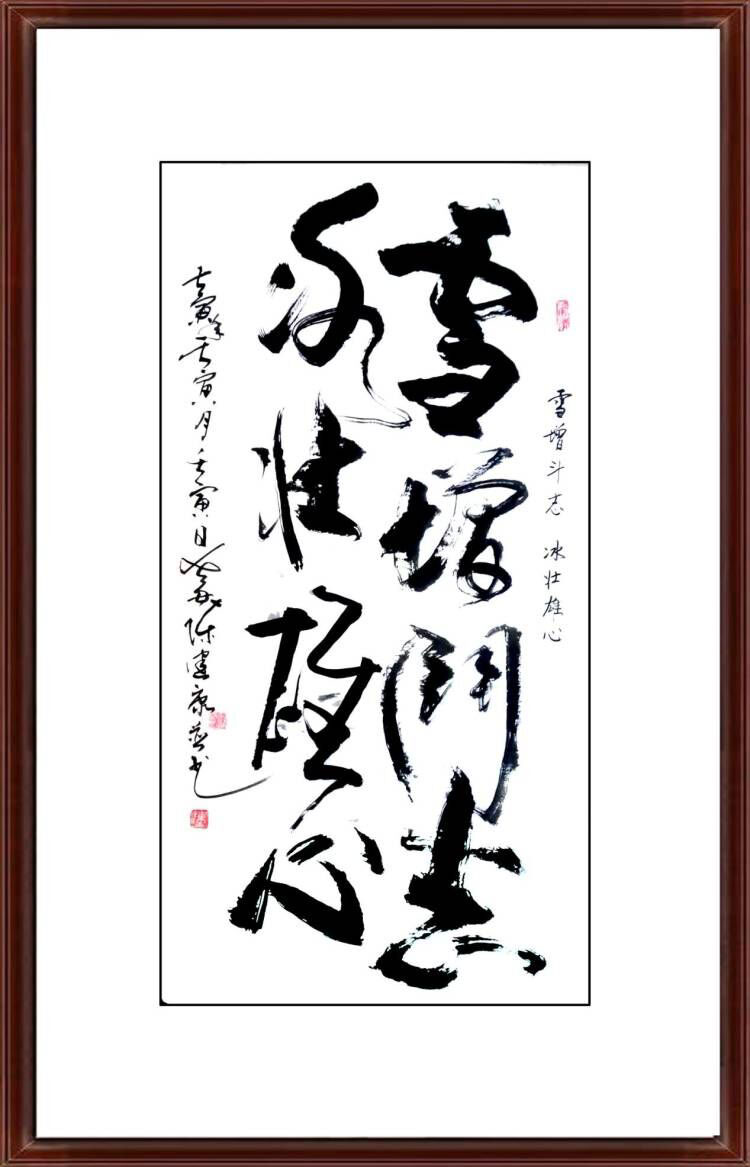 雪增斗志 冰壮雄心
雪增鬥志
冰壮雄心
壬寅年壬寅月壬寅日陈建康并书